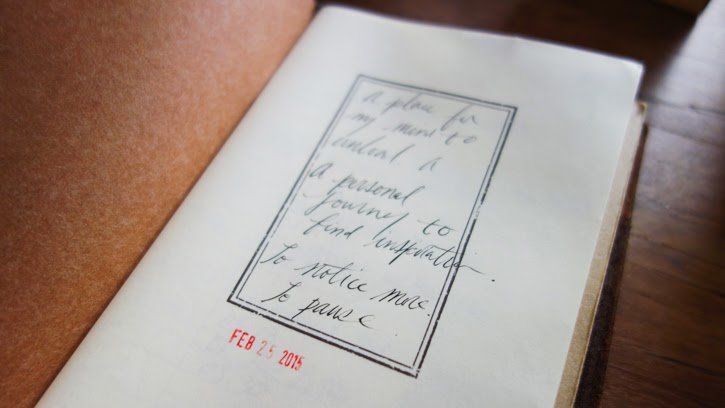 a place for
my mind to
unload a
a personal
journey to
find inspiration.
To notice more.
To pause.
FEB 25 2015